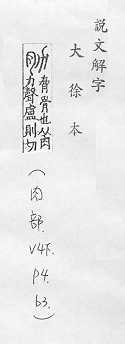 説文解字
大徐本
肋
脅骨也从肉
力聲盧則切
(肉部. V4下. P4. b3.)